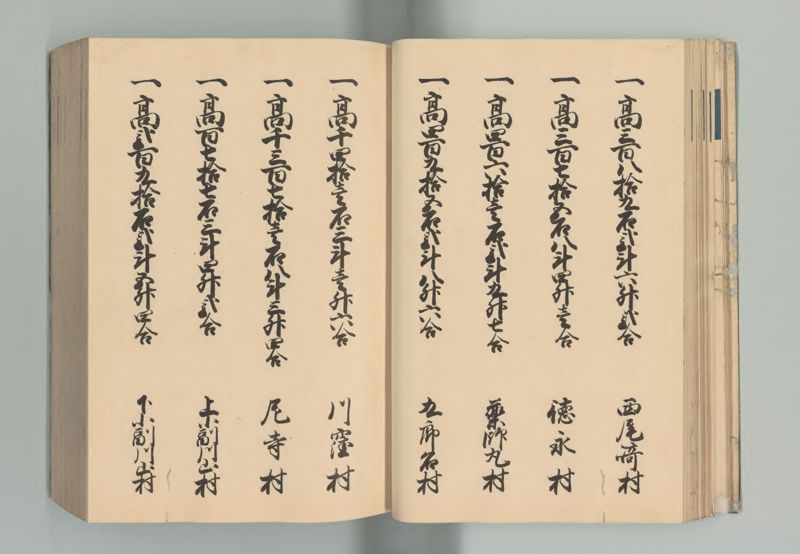 一高三百八拾九石弐斗六升弐合 西尾崎村
一高三百七拾五石八斗四升壱合 徳永村
一高四百六拾壱石弐斗九升七合 薬師丸村
一高四百九拾五石弐斗八升六合 五郎谷村
一高千四拾壱石三斗壱升六合 川窪村
一高千三百七拾壱石八斗三升四合 尾寺村
一高百七拾七石三斗四升弐合 村
一高弐百九拾石弐斗五升四合 村